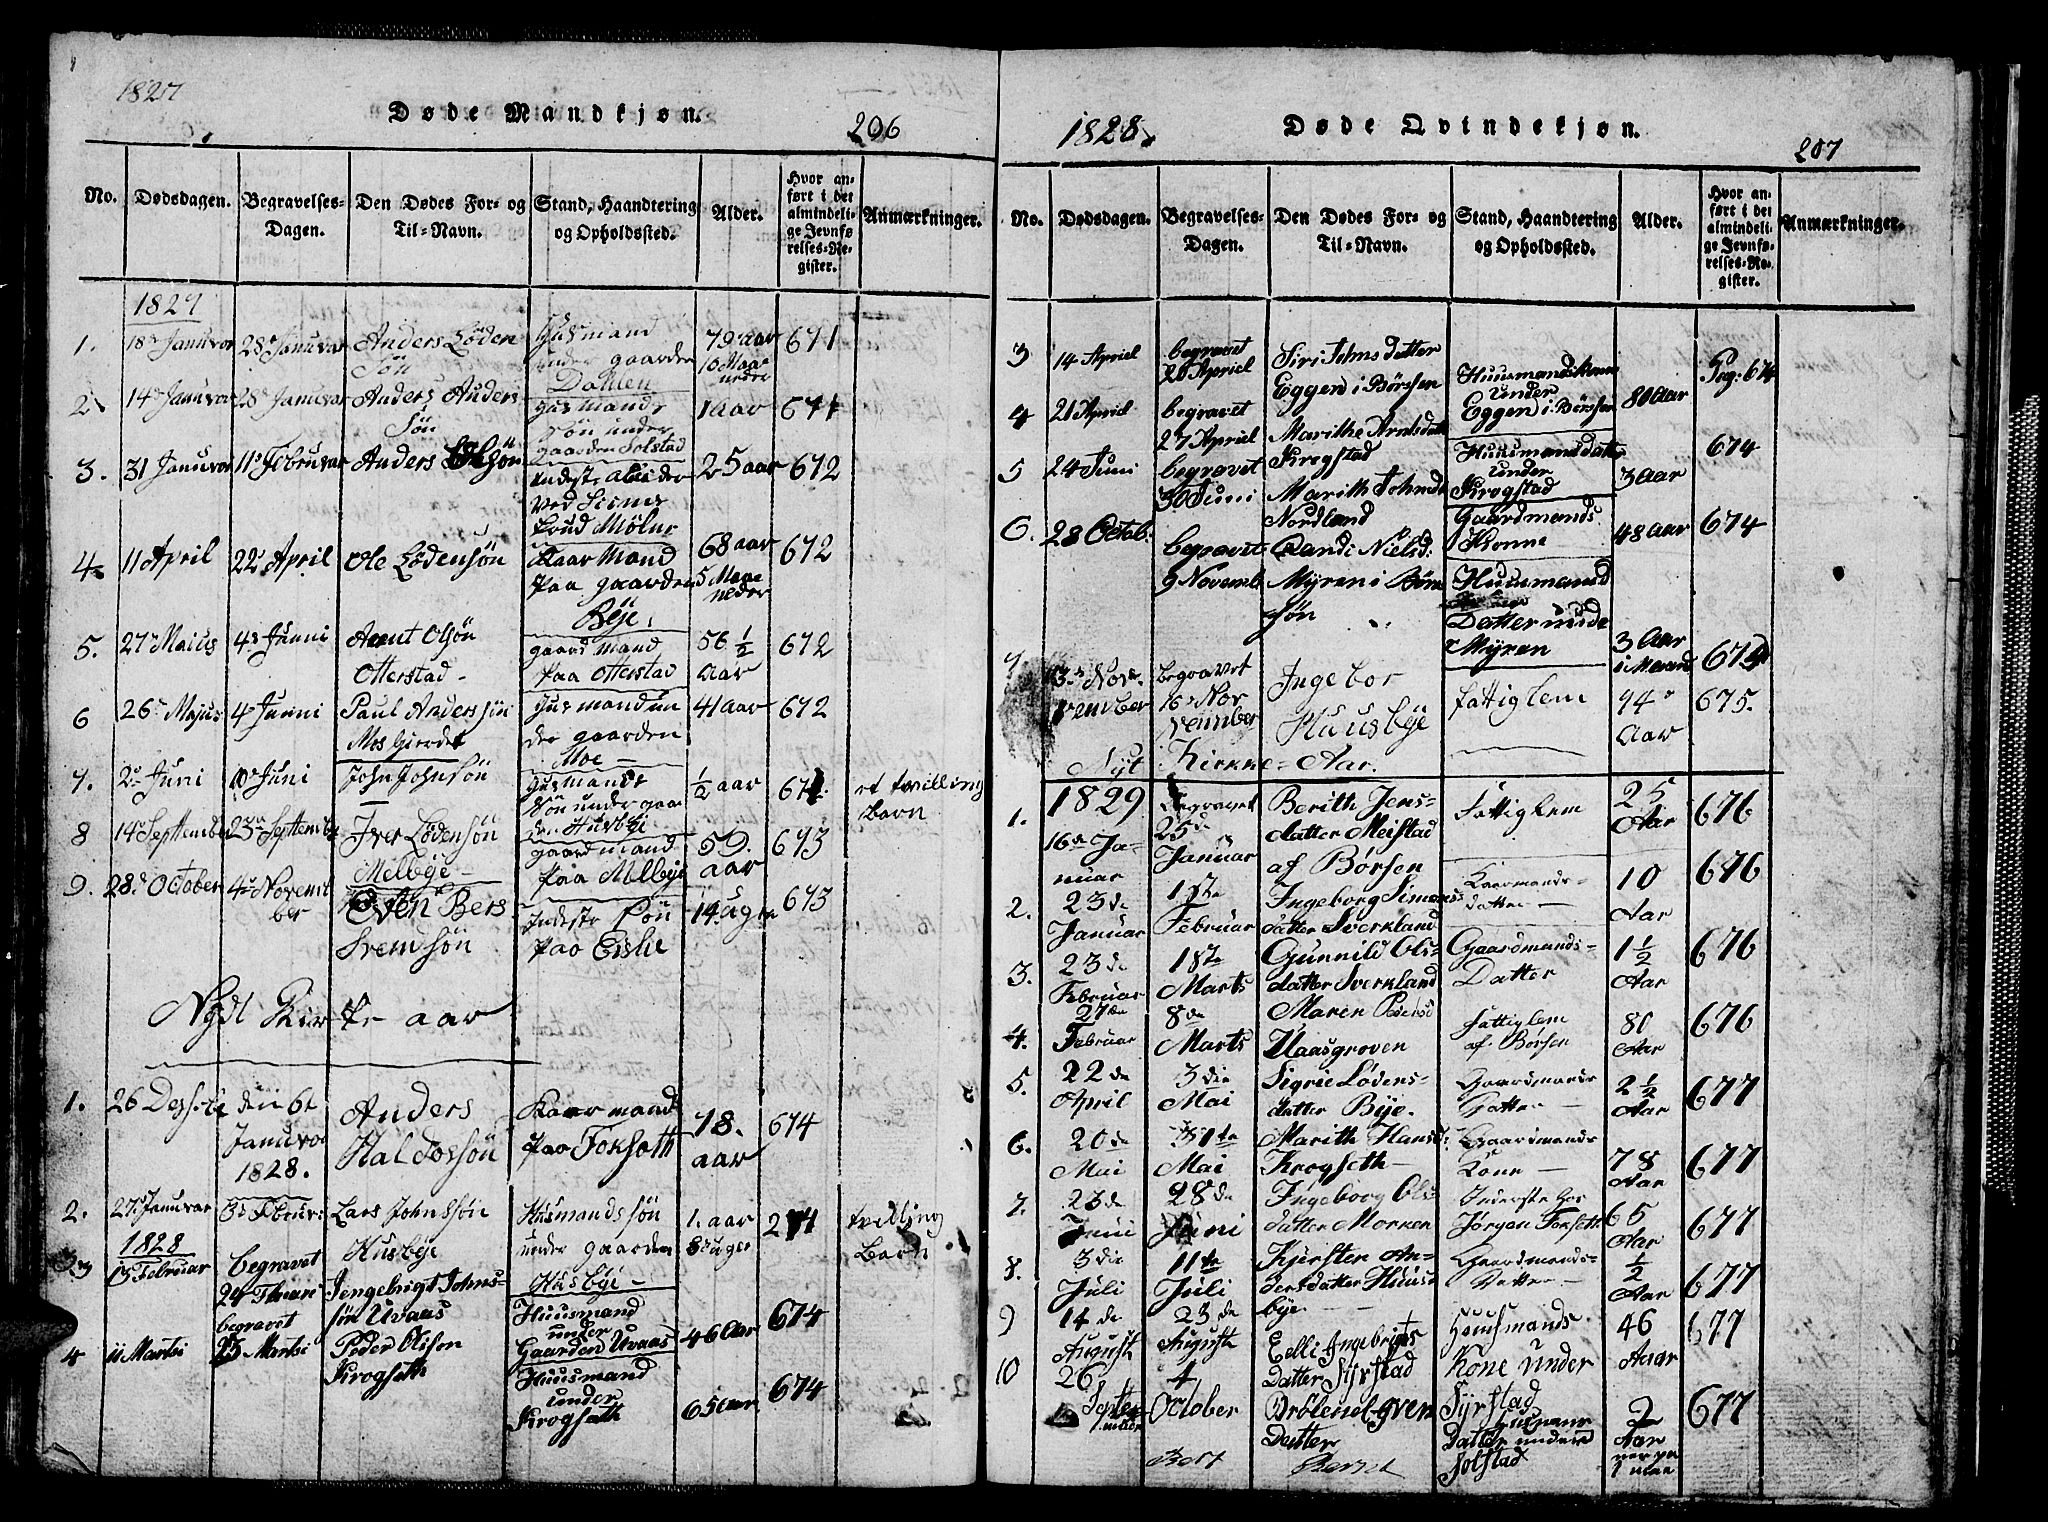 1827
Døde Mandkjøn.
206
No.
Dødsdagen.
Begravelses-
Dagen.
Den Dødes For- og
Til-Navn.
Stand, Haandtering
og Opholdssted.
Alder.
Hvor an-
ført i det
almindeli-
ge Jevnfø-
relses-Re-
gister.
Anmærkninger.
1. 18de Januvar 28de Januvar Anders Löden
Sön
Husmand
under gaarden
Dahlen
79 aar
10 Maa-
neder
671
2. 14de Januvar 28de Januvar Anders Anders
Sön
Husmands
sön under
gaarden Solstad
1 aar
671
3. 31 Januvar 11te Februvar Anders
25 aar
672
4. 11 April 22de April Ole Lödensön
Kaar Mand
paa gaarden
Bye.
68 aar
5 Maae
neder
672
5. 27de Maius 4de Junni Arent Olsön
Otterstad
gaard mand
paa Otterstad
56 1/2
aar
672
6 26de Majus 4de Junni Paul Anderssön
Husmand un
der gaarden
Moe
41 aar
672
7. 2de Juni Juni John Johnsön
Husmands
Sön under gaar
den Husbye
1/2 aar
et tvilling
Barn
8 14de Septtember 23de Septtember Iver Lödensön
Melbye
gaard mand
paa Melbye
59.
aar
673
9. 28de October 4de Novem
ber
Even Bers
Svemsön
Inderste Sön
paa
14 uger
673
Nydt Kirke aar
1. 26 den 6t
Januvar
1828.
Anders
Haldorsön
Kaarmand
paa Foksett
78.
aar
674
2. 27de Januvar Februv Lars Johnssön
Husbye
Husmands sön
under gaarden
Husbye
1. aar
8 uger
274
tvilling
Barn
1828
3 13 Februar
begravet
24 Febuari
Jengebrigt Johns-
sön Uvaas
Huusmand
under
Gaarden Uvaas
46 Aar
674
4 11 Martsi
begravet
23 Martsi
Peder Olisen
Krogseth
Huusmand
under
Krogseth
65 aar
674
1828
Døde Qvindekjøn.
207
No.
Dødsdagen.
Begravelses-
Dagen.
Den Dødes For- og
Til-Navn.
Stand, Haandtering
og Opholdssted.
Alder.
Hvor an-
ført i det
almindeli-
ge Jevnfø-
relses-Re-
gister.
Anmærkninger.
3 14 Apriel
begravet
20 Apriel
Siri Johnsdatter
Eggen i Børssen
Huusmandskone
under
Eggen i Børssen
80 Aar
Pag: 674
4 21 Apriel
begravet
27 Apriel
Marithe Arntsdatt
Krogstad
Huusmansdatter
under
Krogstad
3 Aar
674
5 24 Juni
begravet
30 Juni
Marith Johnsd
Nordland
Gaardmands
Konne
48 Aar
674
6. 28 Octob:
begravet
9 Novemb
Randi Nielsd:
Myren i Børs
søn
Huusmansd
Datter unde
Myren
3 Aar
1 Maaned
7 13de Nov-
vember
begravet
16 Nov
vember
Ingebor
Huusbye
Fattiglem
94
Aar
675.
Nyt Kirke-Aar.
1829
1. 16de Ja-
nuar
Begravet
25de
Januar
Berith Jens-
datter Meistad
af Børsen
Fattiglem
25
Aar
676
2. 23de
Januar
1ste
Februar
Ingeborg Simons-
datter Sverkland
Kaarmands-
datter
10
Aar
676
3. 23de
Februar
18te
Marts
Gunnild Ols-
datter Sverkland
Gaardmands-
Datter
1 1/2
Aar
676
4. 27de
Februar
8de
Marts
Maren Pedersd
Uaasgroven
Fattiglem
af Børsen
80
Aar
676
5. 22de
April
3die
Mai
Sigrie Lødens-
datter Bye.
Gaardmands
Datter
2 1/2
Aar
677
6. 20de
Mai
31te
Mai
Marith Hansd:
Krogseth
Gaardmands
Kone
78
Aar
677
7. 23de
Juni
28de
Juni
Ingeborg Ols-
datter Morken
Inderste hos
Jørgen Foksett
65
Aar
677
8. 3die
Juli
11te
Juli
Kjersten An-
dersdatter Huus-
bye
Gaardmands-
Datter
1/2
Aar
677
9 14de
August
23de
August
Eelli Ingebrigts
Datter Syrstad
Huusmands
Kone under
Syrstad
46
Aar
677
10 26
Septe
mber
4
October
Datter
Datter under
Solstad
2
Aar
677